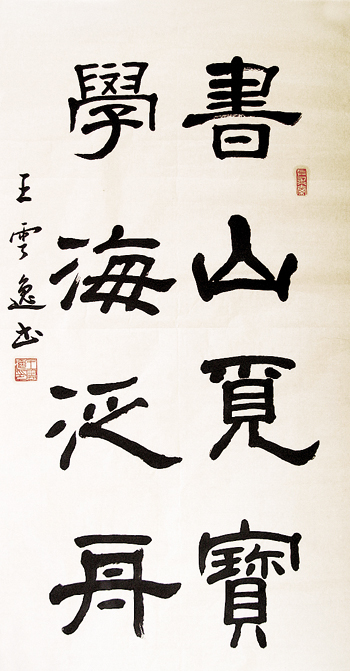 書山覓寶
學海泛舟
王雲逸书